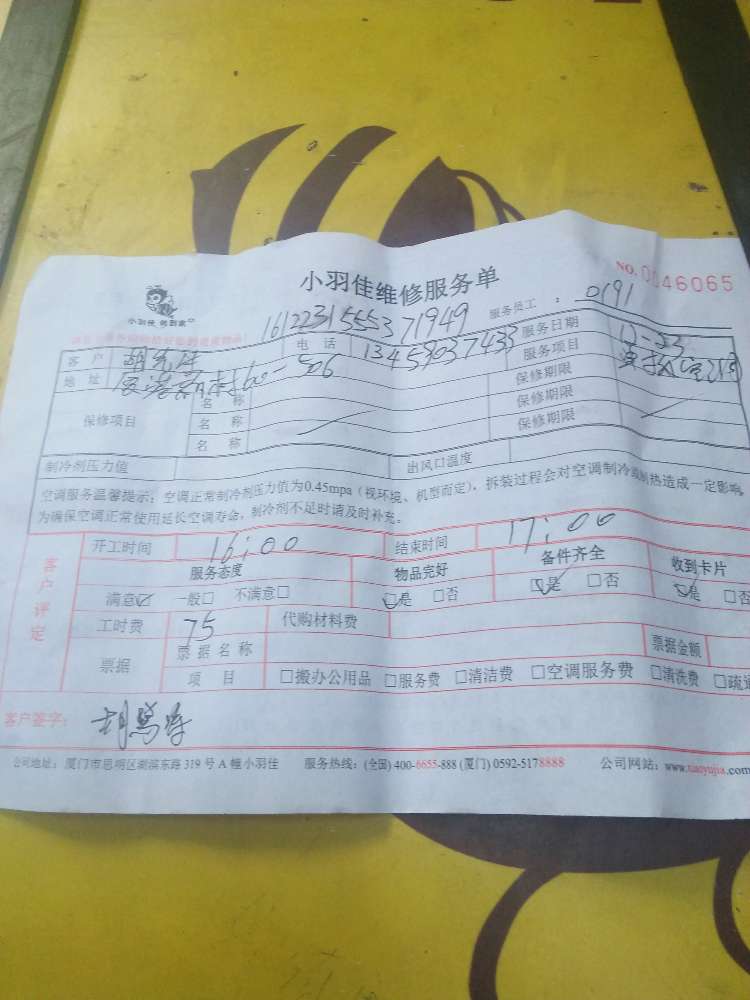 小羽佳维修服务单
NO. 0046065
小羽佳 到家
161223155537 1949
服务员工 : 0191
客 户 电 话 13453037433 服务日期 12-23
地 址 60-506 服务项目
保修项目 名 称 保修期限
名 称 保修期限
名 称 保修期限
制冷剂压力值 出风口温度
空调服务温馨提示：空调正常制冷剂压力值为0.45mpa（视环境、机型而定），拆装过程会对空调制冷或制热造成一定影响，
为确保空调正常使用延长空调寿命，制冷剂不足时请及时补充。
客户评定
开工时间 16:00 结束时间 17:00
服务态度 物品完好 备件齐全 收到卡片
满意☑ 一般□ 不满意□ ☑是 □否 ☑是 □否 ☑是 □否
工时费 75 代购材料费
票据 票据名称 票据金额
项 目 □搬办公用品 □服务费 □清洁费 □空调服务费 □清洗费 □疏通
客户签字：
公司地址：厦门市思明区湖滨东路 319 号 A 幢小羽佳 服务热线：(全国) 400-6655-888 (厦门) 0592-5178888 公司网站：www.xiaoyujia.com